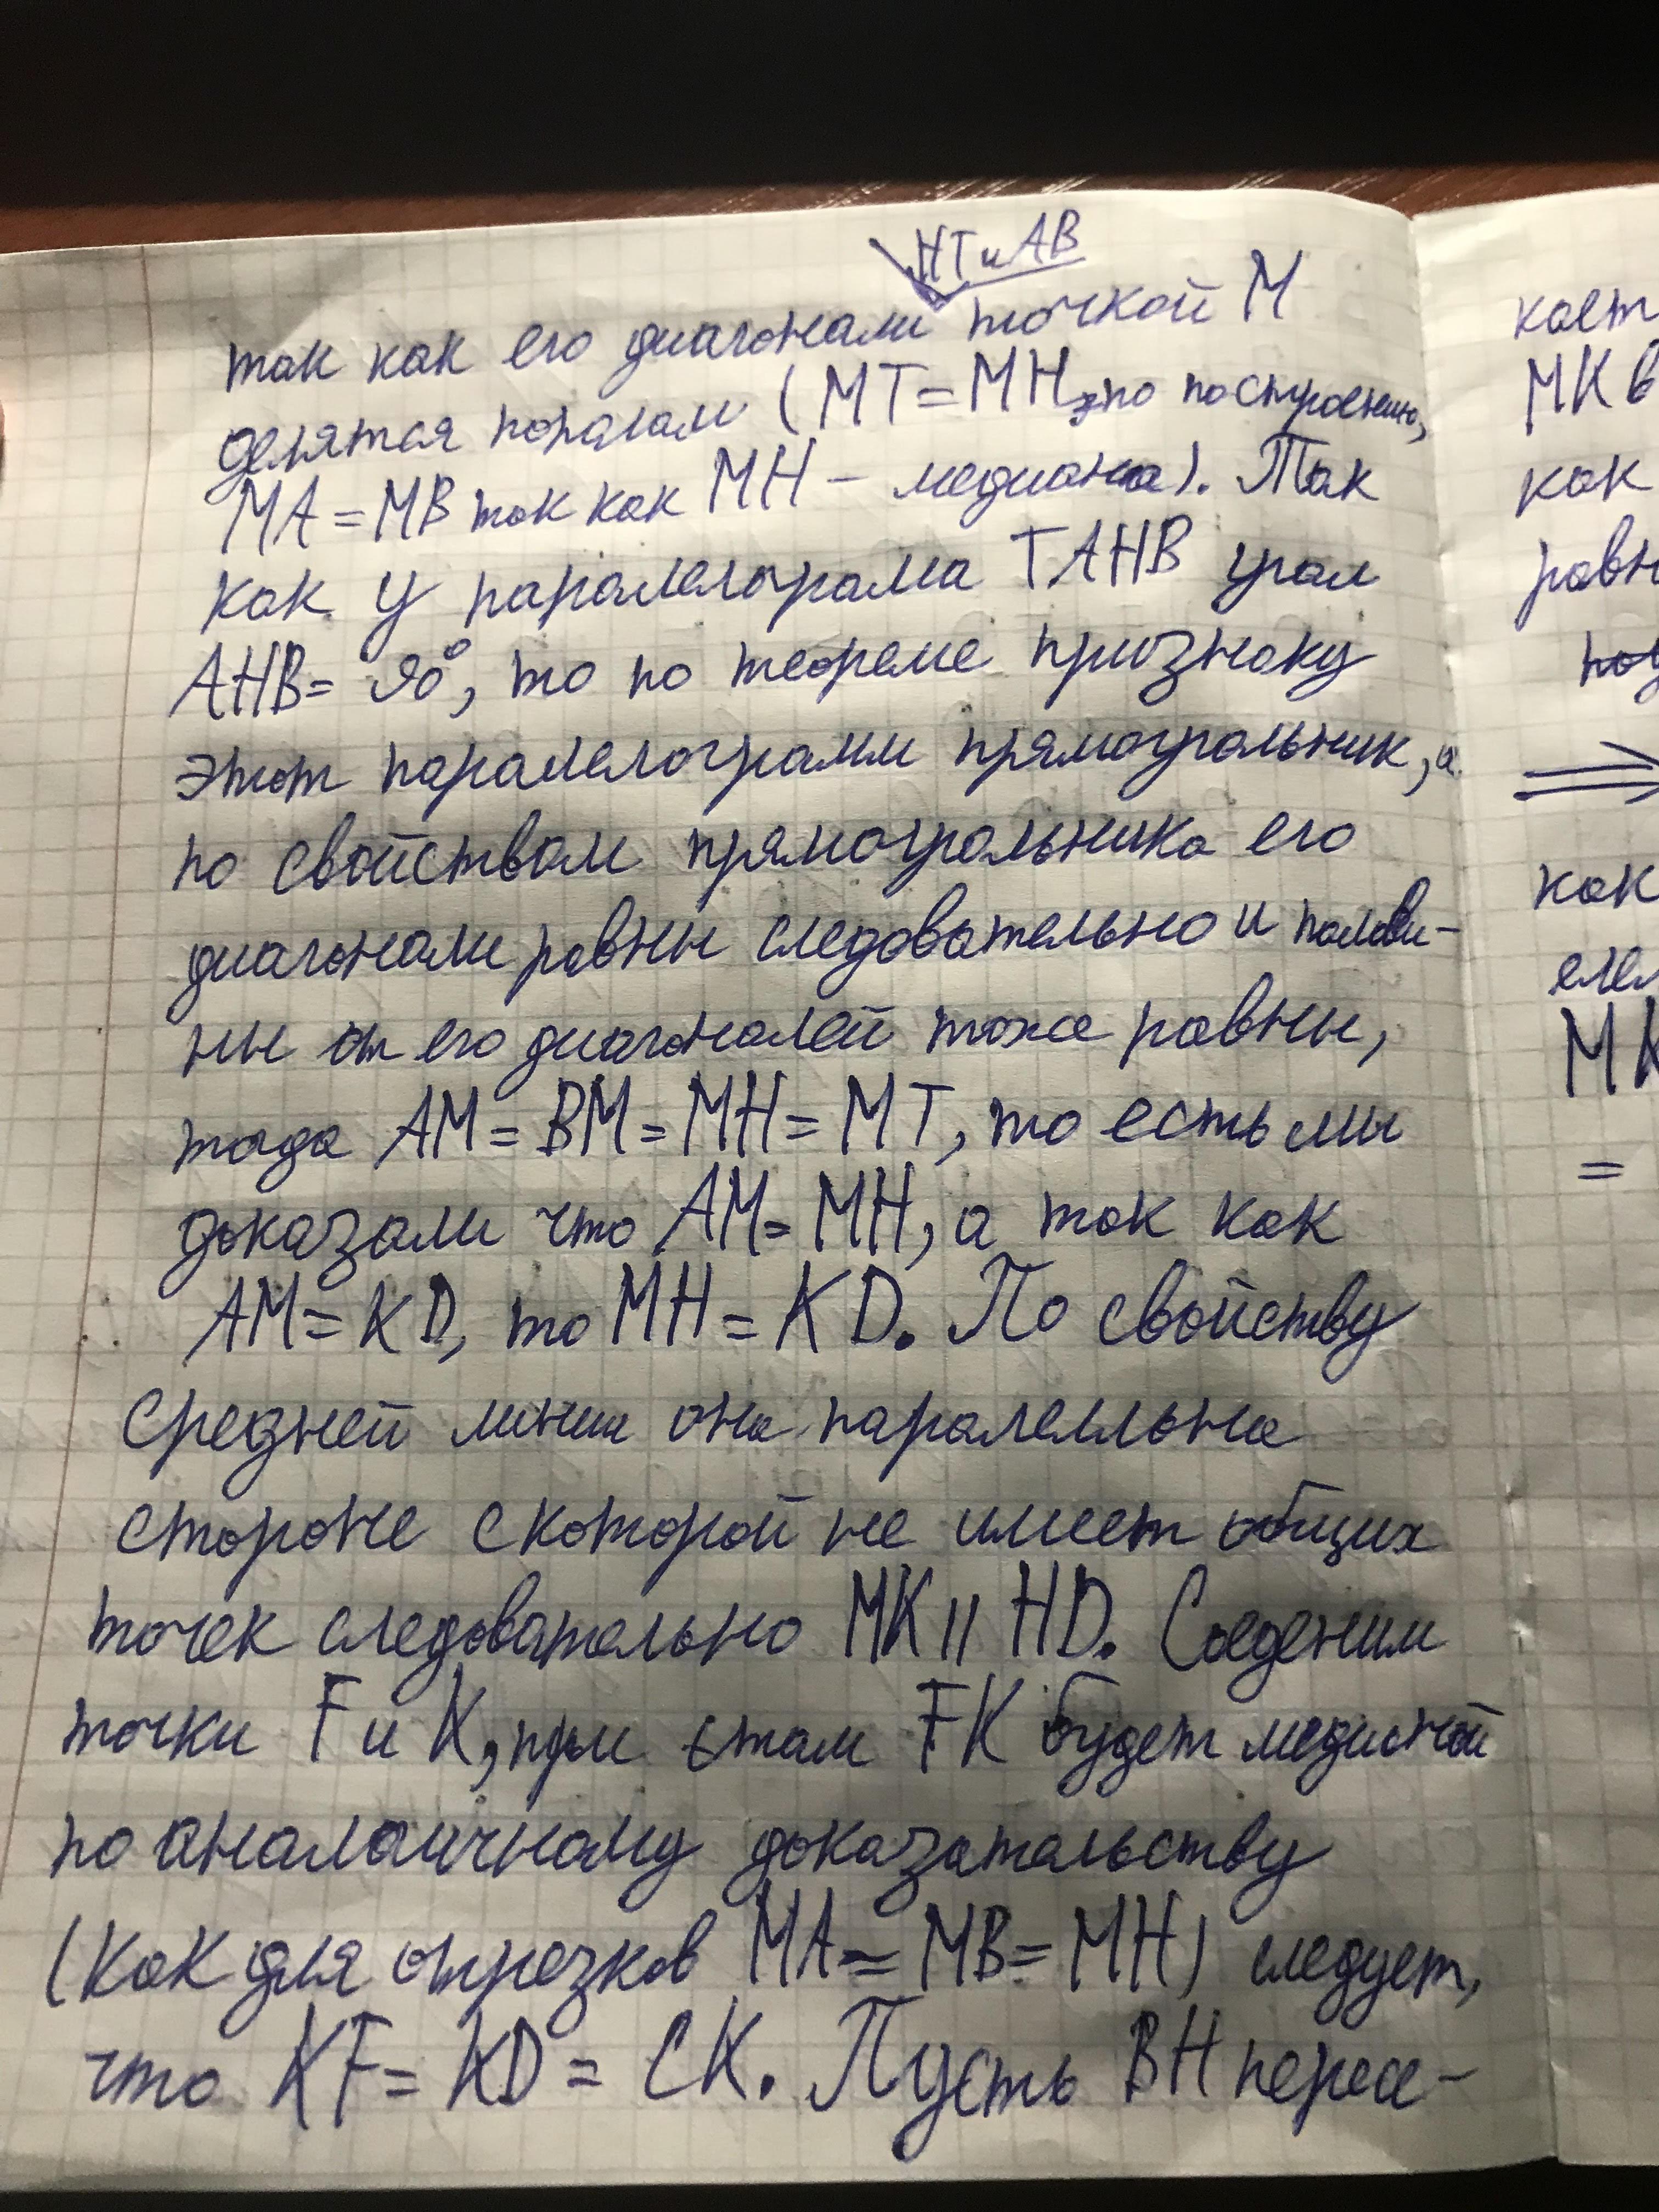 HT и AB
так как его диагонали точкой M
делятся поралам (MT=MH, по построению,
MA=MB так как MH – медиана). Так
как у паралелограма TAHB угол
AHB= 90°, то по теореме признаку
этот паралелограмм прямоугольник, а
по свойствам прямоугольника его
диагонали равны следовательно и полови-
ны его диагоналей тоже равны,
тогда AM=BM=MH=MT, то есть мы
доказали что AM=MH, а так как
AM=KD, то MH=KD. По свойству
средней линии она паралелльна
стороне с которой не имеет общих
точек следовательно MK || HD. Соеденим
точки F и K, при этом FK будет медианой
по аналогичному доказательству
(как для отрезков MA=MB=MH) следует,
что KF=KD=CK. Пусть BH пересе-
кает
MK в
как
равн
⟹
как
MK
=